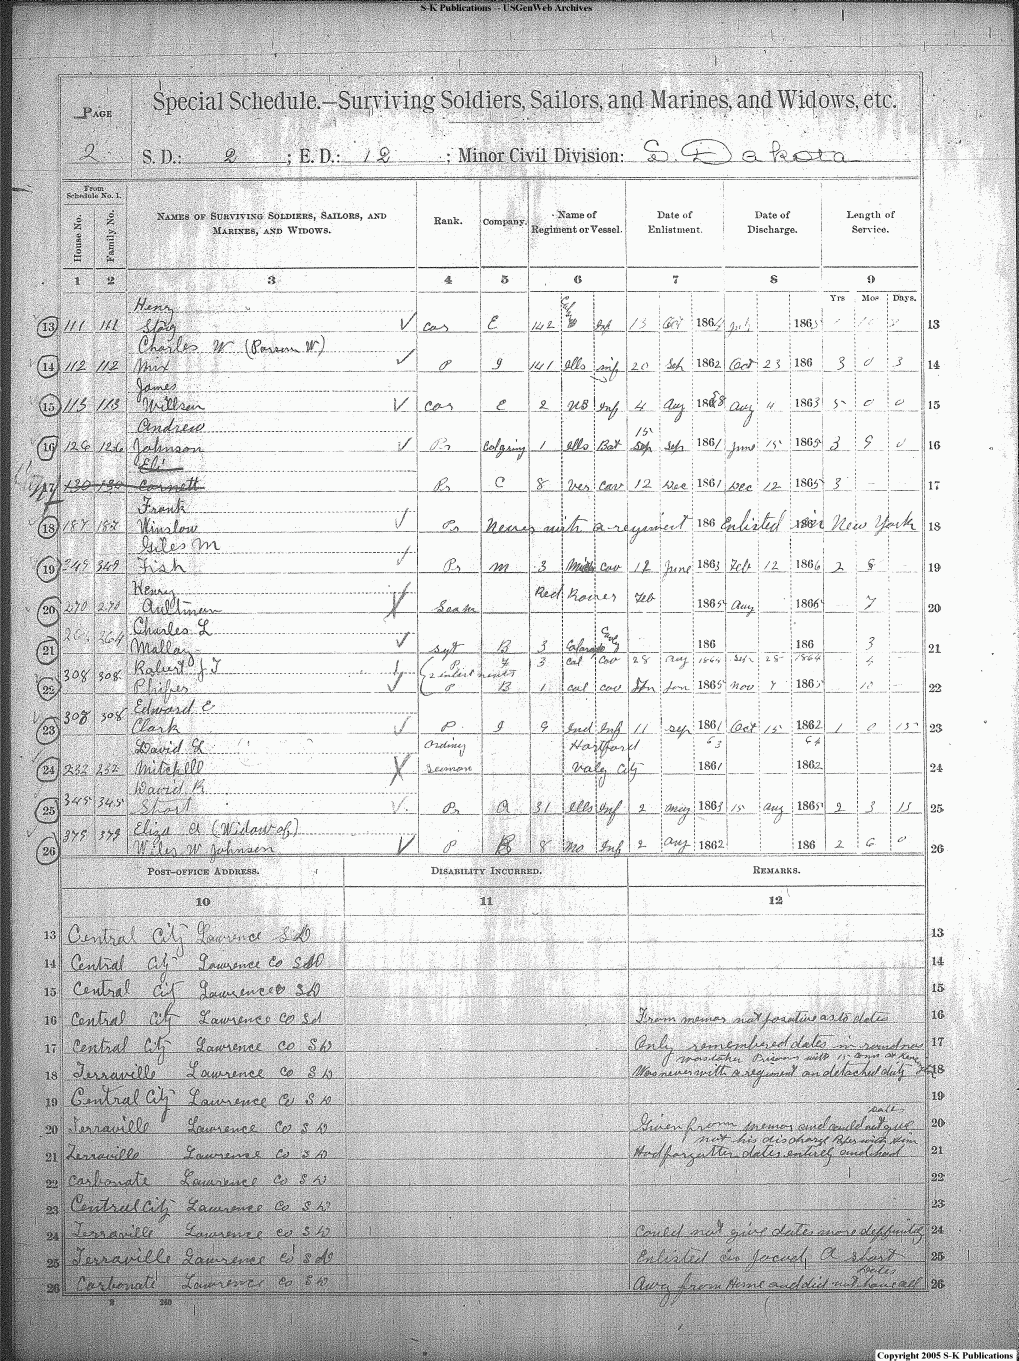 S-K Publications - USGenWeb Archives
Special Schedule.—Surviving Soldiers, Sailors, and Marines, and Widows, etc.
Page 2
S. D.: 2 ; E. D.: 12 ; Minor Civil Division: S. Dakota
From Schedule No. 1.
House No. Family No. Names of Surviving Soldiers, Sailors, and Marines, and Widows. Rank. Company. Name of Regiment or Vessel. Date of Enlistment. Date of Discharge. Length of Service.
1 2 3 4 5 6 7 8 9
Yrs Mos Days.
Henry
13 111 111 cor E 142 Inf 13 Oct 1864 July 1865 13
Charles W (Parson W)
14 112 112 Mix P I 141 ells inf 20 Sep 1862 Oct 23 186 3 0 3 14
James
15 113 113 Willson cor C 2 Inf 4 Aug Aug 4 1863 5 0 0 15
Andrew
15
16 126 126 Johnson Pr 1 ells Bat Sep Sep 1861 June 15 1865 3 9 0 16
Eli
17 130 130 Cornett Pr C 8 ver cav 12 Dec 1861 Dec 12 1865 3 - 17
Frank
18 187 187 Winslow Pr Never with a regiment 186 Enlisted in New York 18
Giles M
19 349 349 Fish Pr M 3 cav 12 June 1863 Feb 12 1866 2 8 19
Henry Red Rover Feb
20 270 270 Aultman Seam 1865 Aug 1865 7 20
Charles L Cav
21 264 Mallay sgt B 3 Colorado 186 186 3 21
308 308 Robert J T P F 3 cal cav 28 Aug 1864 Sep 28 1864
2 inlistments
22 Phifer P B 1 cal cav Jan 1865 Nov 7 1865 10 22
308 308 Edward C
23 Clark P I 9 Ind Inf 11 Sep 1861 Oct 15 1862 1 0 15 23
David L ordiny Hartford 63 64
24 232 232 Mitchell seaman Valey City 1861 1862 24
David R
25 345 345 Short Pr A 31 ells Inf 2 1863 15 Aug 1865 2 3 13 25
379 379 Eliza A (Widow of)
26 Wiles W Johnson P B 8 Mo Inf 2 Aug 1862 186 2 6 0 26
Post-Office Address. Disability Incurred. Remarks.
10 11 12
13 Central City Lawrence S D 13
14 Central City Lawrence Co S D 14
15 Central Cit Lawrence Co S D 15
16 Central City Lawrence Co S d From memor not posative as to dates 16
17 Central City Lawrence Co S D Only remembered dates in 17
18 Terraville Lawrence Co S D Was never with a regiment on detached duty 18
19 Central City Lawrence Co S D 19
dates
20 Terraville Lawrence Co S D Given from memor and could not give 20
not his discharge with him
21 Terraville Lawrence Co S D Had forgotten dates entirely and had 21
22 Carbonate Lawrence Co S D 22
23 Central City Lawrence Co S D 23
24 Terraville Lawrence Co S D Could not give dates more deffinitly 24
25 Terraville Lawrence Co S D Enlisted in A short 25
dates
26 Carbonate Lawrence Co S D Away from Home and did not have all 26
Copyright 2005 S-K Publications